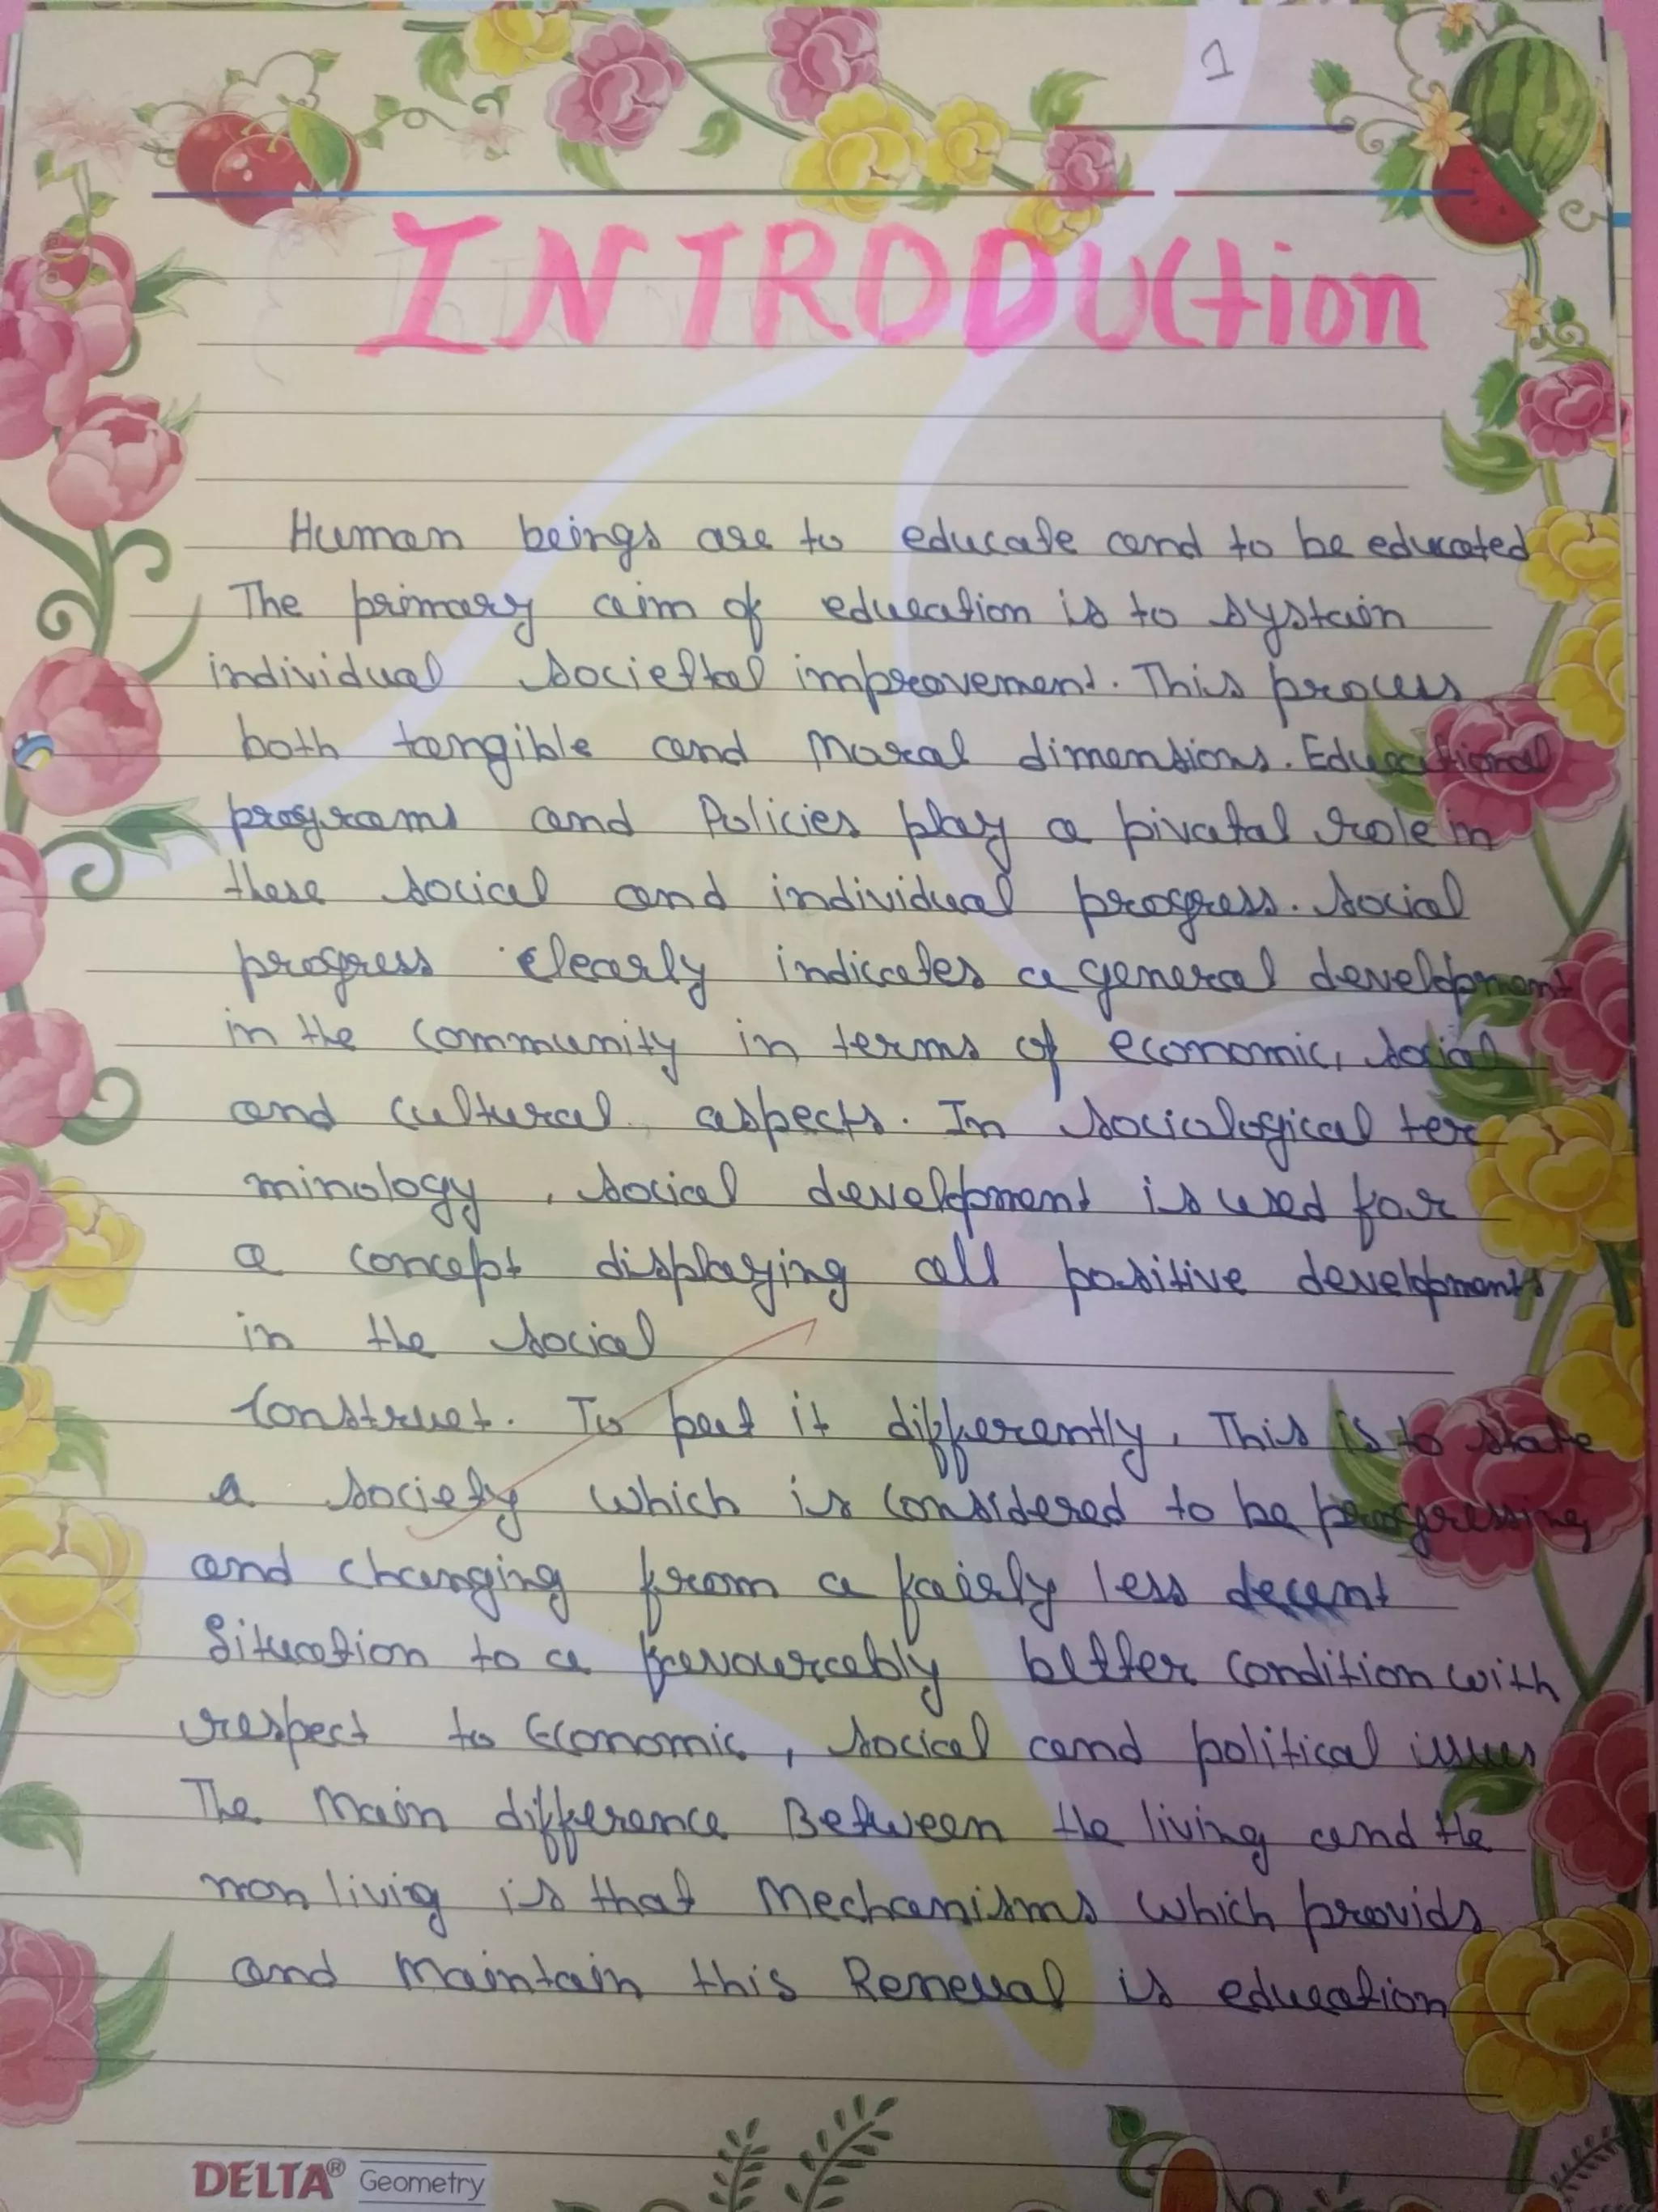 1
INTRODUCtion
Human beings are to educate and to be educated
The primary aim of education is to systain
individual societtal improvement. This process
both tangible and Moral dimensions. Educational
programs and Policies play a pivatal role in
these social and individual progress. Social
progress clearly indicates a general development
in the community in terms of economic, social
and cultural aspects. In sociological ter
minology, social development is used for
a concept displaying all positive developments
in the social
Construct. To put it differently, This is to state
a society which is considered to be progressing
and changing from a fairly less decent
Situation to a favourably better condition with
respect to Economic, social and political issues
The Main difference Between the living and the
non livig is that Mechanisms which provids
and Maintain this Renewal is education
DELTA® Geometry